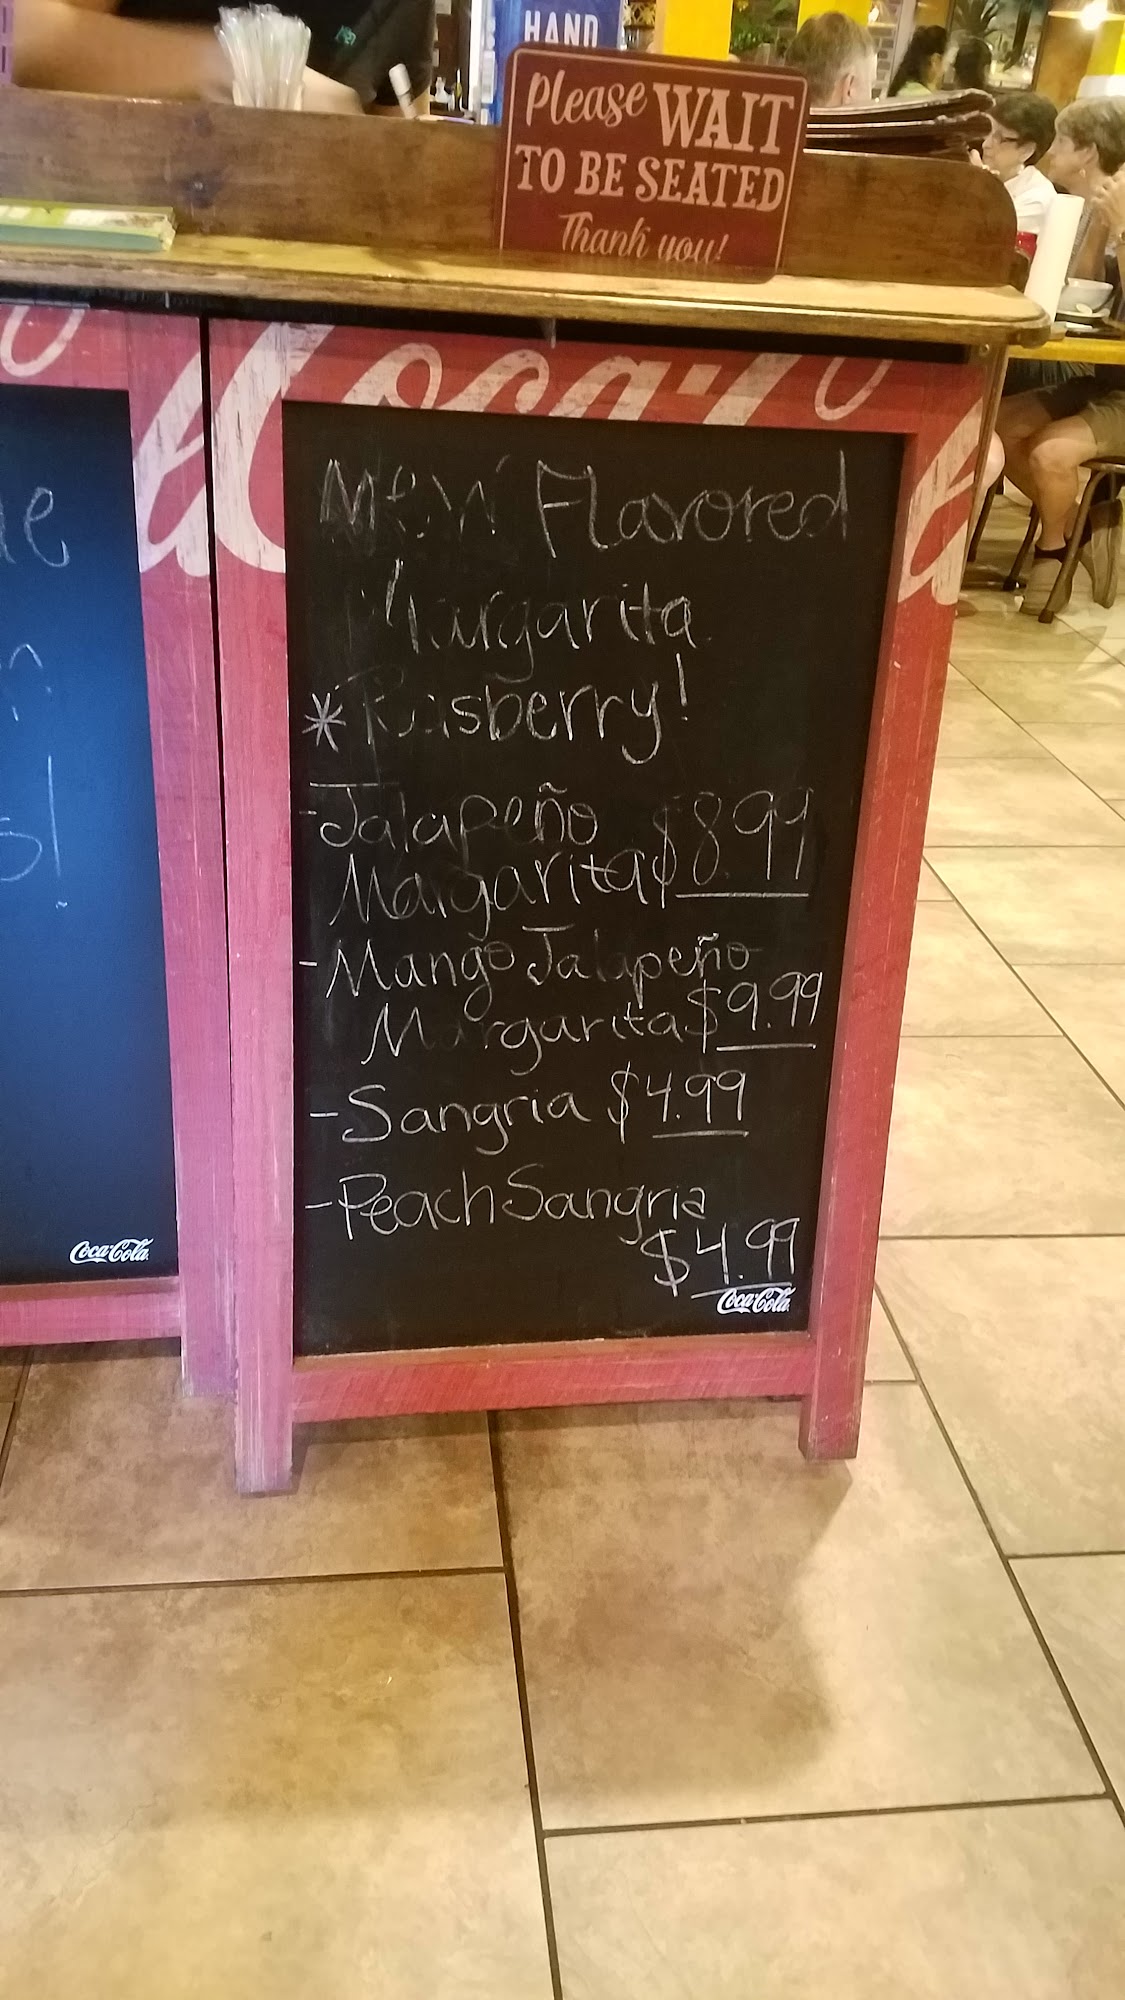 HAND
Please WAIT
TO BE SEATED
Thank you!
Coca-Co
New Flavored
Margarita
*Rasberry!
-Jalapeño $8.99
Margarita$
-Mango Jalapeño
Margarita $9.99
-Sangria $4.99
-Peach Sangria
$4.99
Coca-Cola
Coca-Cola